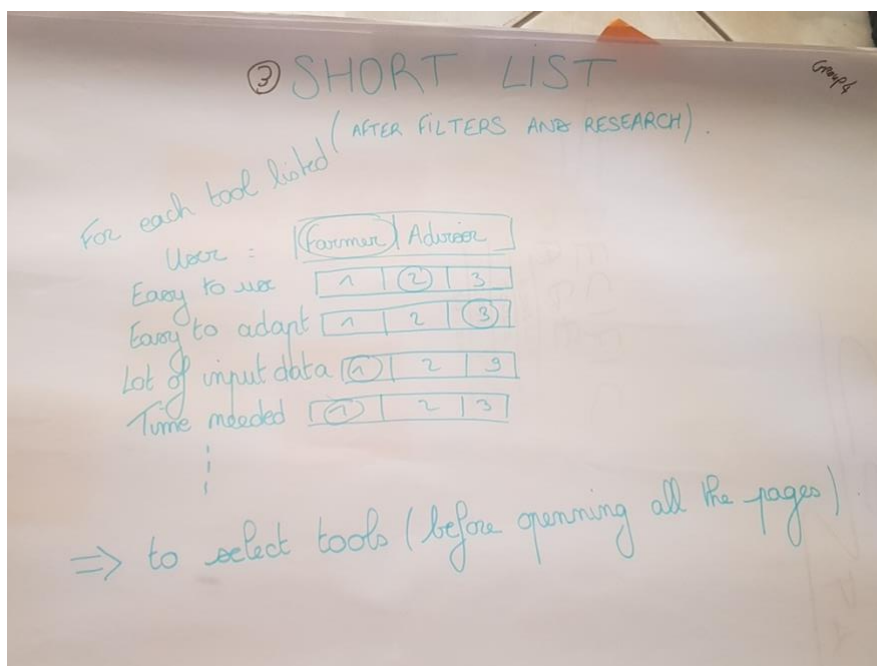 ③ SHORT LIST
Group 4
(AFTER FILTERS AND RESEARCH).
For each tool listed
User : Farmer Advisor
Easy to use 1 2 3
Easy to adapt 1 2 3
Lot of input data 1 2 3
Time needed 1 2 3
⇒ to select tools (before openning all the pages)